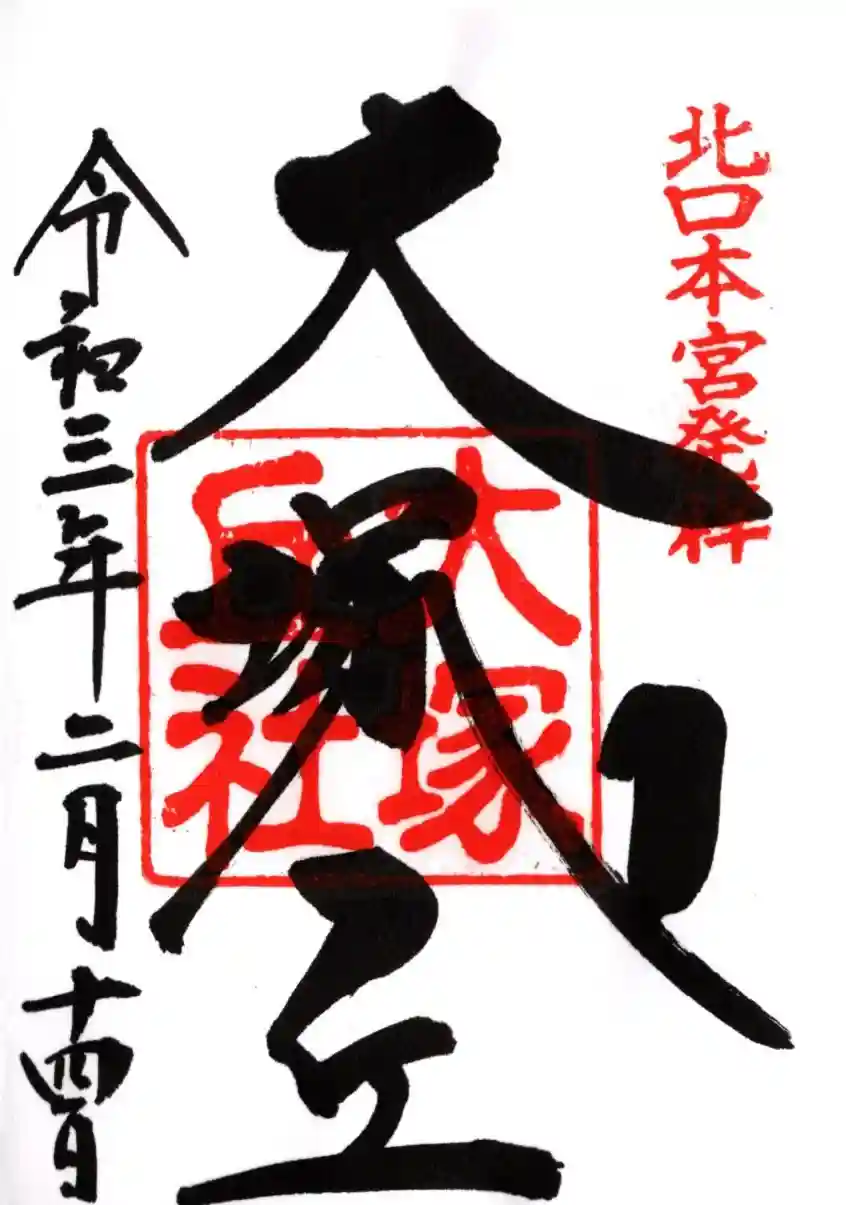 北口本宮発祥
大塚丘
大塚
丘社
令和三年二月十四日